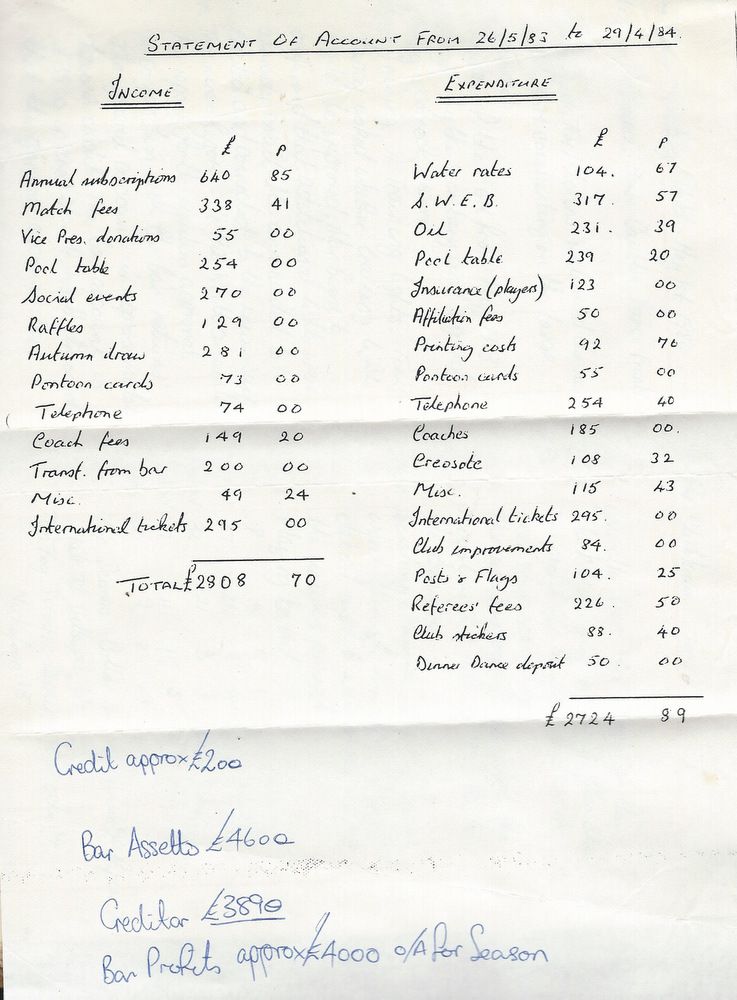 STATEMENT OF ACCOUNT FROM 26/5/83 to 29/4/84.
INCOME
£ p
Annual subscriptions 640 85
Match fees 338 41
Vice Pres. donations 55 00
Pool table 254 00
Social events 270 00
Raffles 129 00
Autumn draw 281 00
Pontoon cards 73 00
Telephone 74 00
Coach fees 149 20
Transf. from bar 200 00
Misc. 49 24
International tickets 295 00
TOTAL £2808 70
EXPENDITURE
£ p
Water rates 104. 67
S.W.E.B. 317. 57
Oil 231. 39
Pool table 239 20
Insurance (players) 123 00
Affiliation fees 50 00
Printing costs 92 76
Pontoon cards 55 00
Telephone 254 40
Coaches 185 00.
Creosote 108 32
Misc. 115 43
International tickets 295. 00
Club improvements 84. 00
Posts & Flags 104. 25
Referees' fees 226. 50
Club stickers 88. 40
Dinner Dance deposit 50. 00
£2724 89
Credit approx £200
Bar Assetts £4600
Creditor £3890
Bar Profits approx £4000 o/A for Season